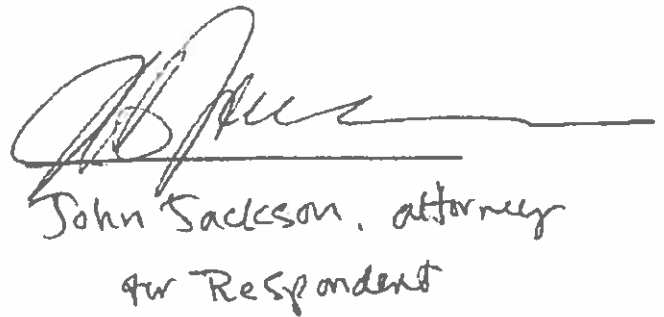 John Jackson, attorney
for Respondent